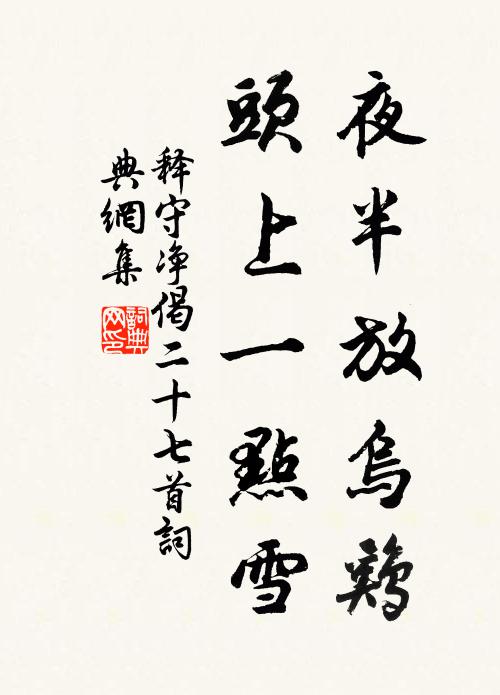 夜半放烏鷄
頭上一點雪
释守净偈二十七首詞
典網集
詞典
网印